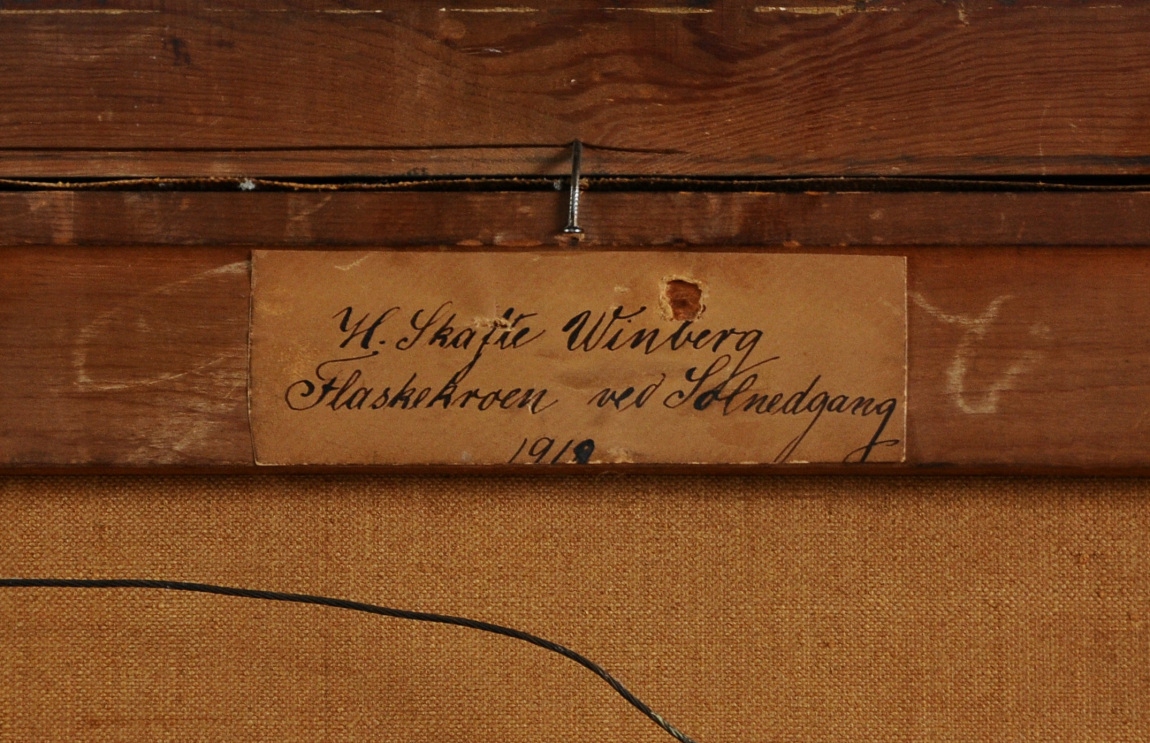 H. Skafte Winberg
Flaskekroen ved Solnedgang